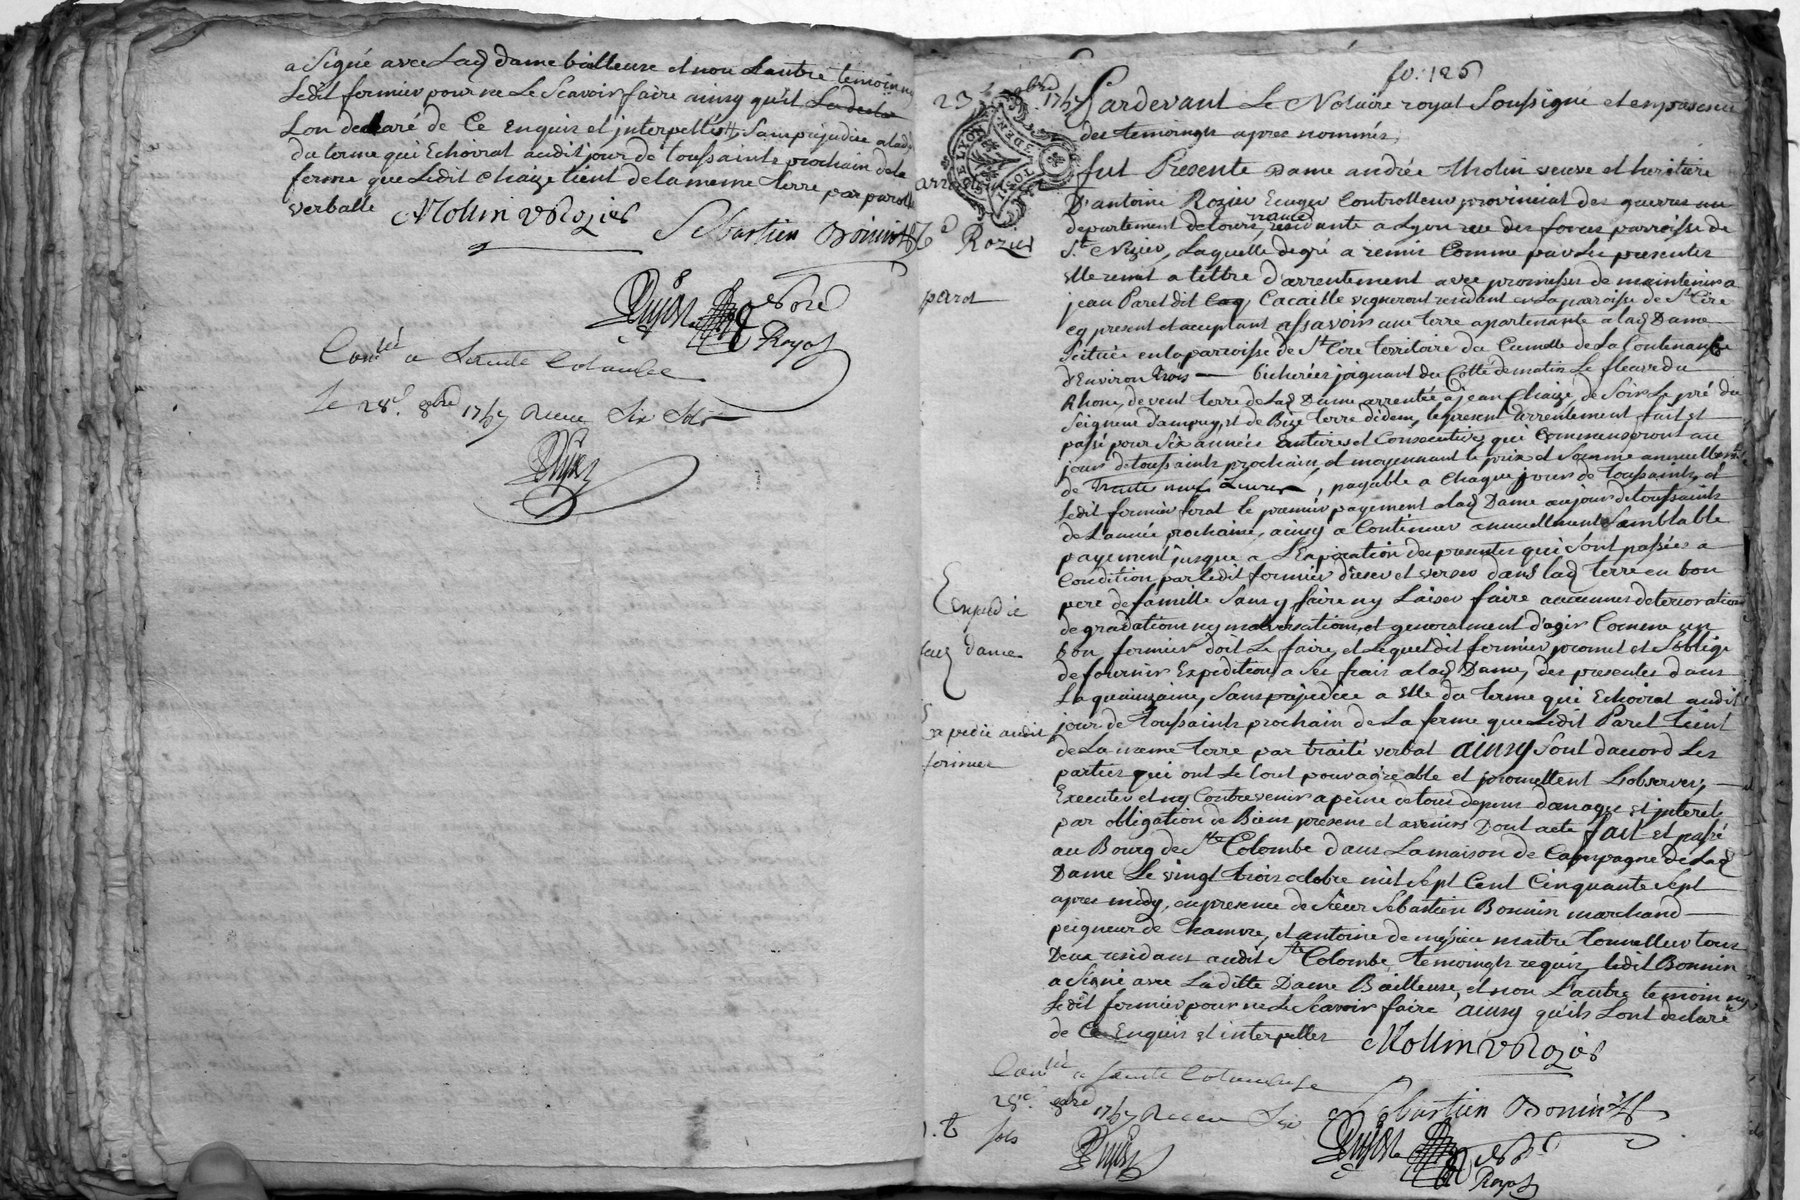 a Signé avec Lad dame bailleuse et non Lautre temoin ny
Ledit fermier pour ne Le Scavoir faire ainsy qu'il
Lon declaré de Ce Enquis et interpellés Sans prejudice a lad
du terme qui Echoirat audit jour de toussaints prochain de la
ferme que Ledit Chaize tient de la meme terre par parolle
verballe Mollin v Rozier
Sebastien Bonin
Royal
Con.lé a Sainte Colombe
Le 28.e 8bre 1757 Receu Six Sols
fo: 126
23 8bre 1757
Pardevant Le Notaire royal Soussigné et en presence
des temoingts apres nommés,
DE LYON
fut Presente Dame andrée Molin veuve et heritiere
D'antoine Rozier Ecuyer Controlleur provincial des guerres au
Rozier
departement de tours, residante a Lyon rue des forces parroisse de
St. Nizier, Laquelle de gré a remis Comme par Les presentes
Elle remet a tittre d'arrentement avec promesses de maintenir a
parot
jean Paret dit Cacaille vigneront residant en La parroisse de St Cire
cy present et aceptant assavoir une terre apartenante a lad Dame
Scituée en la parroisse de St Cire territoire du de La Contenance
d'Environ trois — bicherées joignant du Cotté de matin Le fleuve du
Rhone, de vent terre de Lad Dame arrentée a jean Chaize, de Soir Le pré du
Seigneur d'ampuy, et de Bize terre d'idem, le present arrentement fait et
passé pour Six années Entieres et Consecutives qui Commenseront au
jour de toussaints prochain, et moyennant le prix et Somme annuelle
de Trente neuf Livres, payable a Chaque jour de toussaints, et
Ledit fermier ferat le premier payement a lad Dame au jour de toussaints
de L'année prochaine, ainsy a Continuer annuellement Semblable
payement jusque a L'Expiration des presentes qui Sont passées a
Condition par ledit fermier d'user et verser dans lad terre en bon
Expedie
pere de famille Sans y faire ny Laiser faire aucunes deteriorations
degradations ny malversations, et generalement d'agir Comme un
lad dame
bon fermier doit Le faire, et Lequel dit fermier promet et S'oblige
de fournir Expedition a Ses frais a lad Dame, des presentes dans
La quainzaine, Sans prejudice a Elle du terme qui Echoirat audit
Expedie audit
jour de Toussaints prochain de La ferme que Ledit Paret tient
fermier
de La meme terre par traité verbal ainsy Sont d'acord Les
parties qui ont Le tout pour agreable et promettent L'observer,
Executer et ny Contrevenir a peine de tous depens domage et interets
par obligation de Biens presens et avenirs Dont acte fait et passé
au Bourg de Ste Colombe dans La maison de Campagne de Lad
Dame Le vingt trois octobre mil Sept Cent Cinquante Sept
apres midy, en presence de Sieur Sebastien Bonnin marchand
peigneur de Chamvre, et antoine maitre tonnellier tous
Deux residans audit Ste Colombe, temoingts requis, ledit Bonnin
a Signé avec Laditte Dame Bailleuse, et non L'autre temoin ny
Ledit fermier pour ne Le Scavoir faire ainsy qu'ils L'ont declaré
de Ce Enquis et interpelles Mollin v Rozier
Con.lé a Sainte Colombe
28.e 8bre 1757 Receu Six
Sols
Sebastien Bonin
Royal